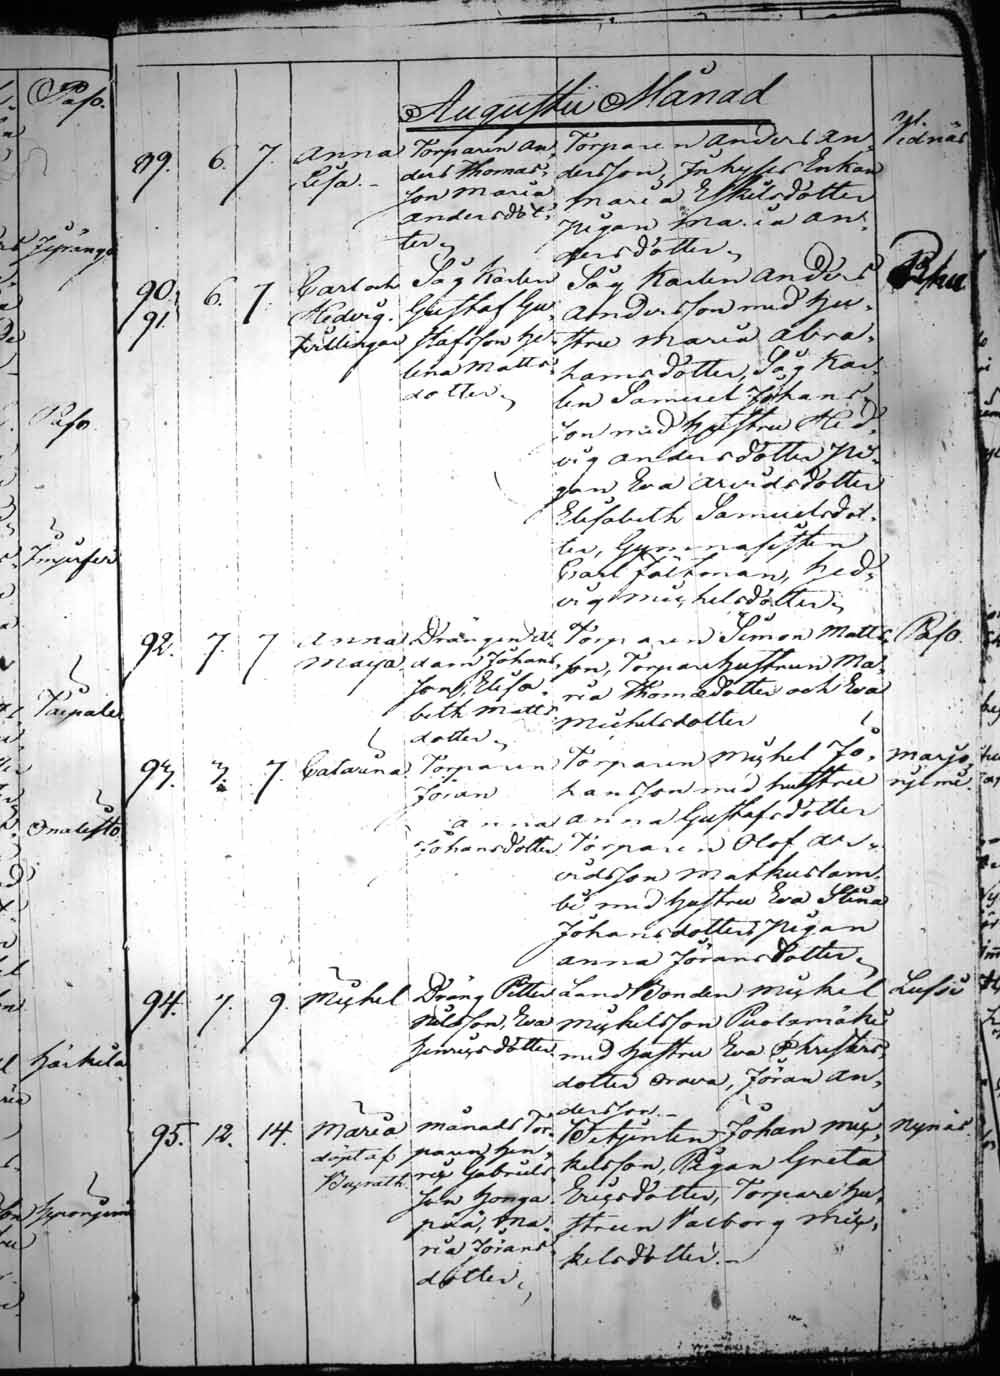 Augustii Månad
89. 6. 7. Anna Lisa.
Torparen An,
ders Thomas,
son Maria
Andersdot,
ter,
Torparen Anders An,
dersson, Inhyses Enkan
Maria Eskilsdotter
Pigan Maria An,
dersdotter,
Yl.
Vidnäs
90. 91. 6. 7. Carl och
Hedvig.
tvillingar
Såg Karlen
Gustaf Gu,
stafsson He,
lena Matts
dotter,
Såg Karlen Anders
Andersson med Hu,
stru Maria Abra,
hamsdotter, Såg Kar,
len Samuel Johans,
son med Hustru Hed,
vig Andersdotter Pi,
gan Eva Arvidsdotter
Elisabeth Samuelsdot,
ter, Gymnasisten
Carl Falkman, Hed,
vig Michelsdotter,
92. 7. 7. Anna
Maja
Drängen A,
dam Johans,
son, Elisa,
beth Matts
dotter,
Torparen Simon Matts,
son, Torpare hustrun Ma,
ria Thomædotter och Eva
Michelsdotter
Paso.
93. 3. 7. Catarina
Torparen
Jöran
Anna
Johansdotter
Torparen Michel Jo,
hansson med hustru
Anna Gustafsdotter
Torparen Olof Ar,
vidsson Matkuslam,
bi med hustru Eva Stina
Johansdotter Pigan
Anna Jöransdotter,
Marjo,
njemi.
94. 7. 9. Michel
Dräng Petter
Nilsson, Eva
Henricsdotter
Landbonden Michel
Michelsson Puolamäki
med hustru Eva Christers
dotter Orava, Jöran An,
dersson.
Lussi
95. 12. 14. Maria
döpt af
Månads Tor,
paren Hen,
ric Gabriels
son Honga
pää, Ma,
ria Jörans
dotter,
Betjenten Johan Mic,
kelsson, Pigan Greta
Ericsdotter, Torpare hu,
strun Valborg Mic,
kelsdotter.
Nynäs.
Paso.
Paso
Härkälä